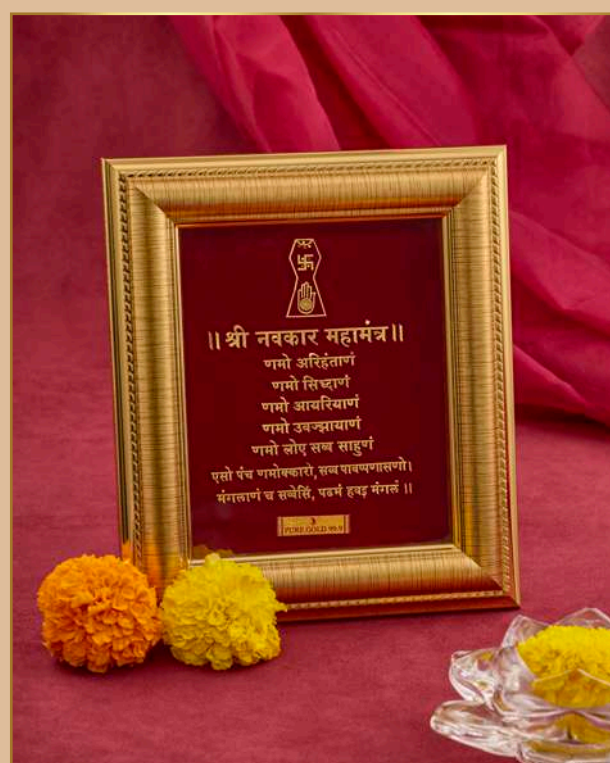 ॥ श्री नवकार महामंत्र ॥
णमो अरिहंताणं
णमो सिध्दाणं
णमो आयरियाणं
णमो उवज्झायाणं
णमो लोए सव्व साहुणं
एसो पंच णमोक्कारो, सव्व पावप्पणासणो।
मंगलाणं च सव्वेसिं, पढमं हवइ मंगलं ॥
PURE GOLD 99.9